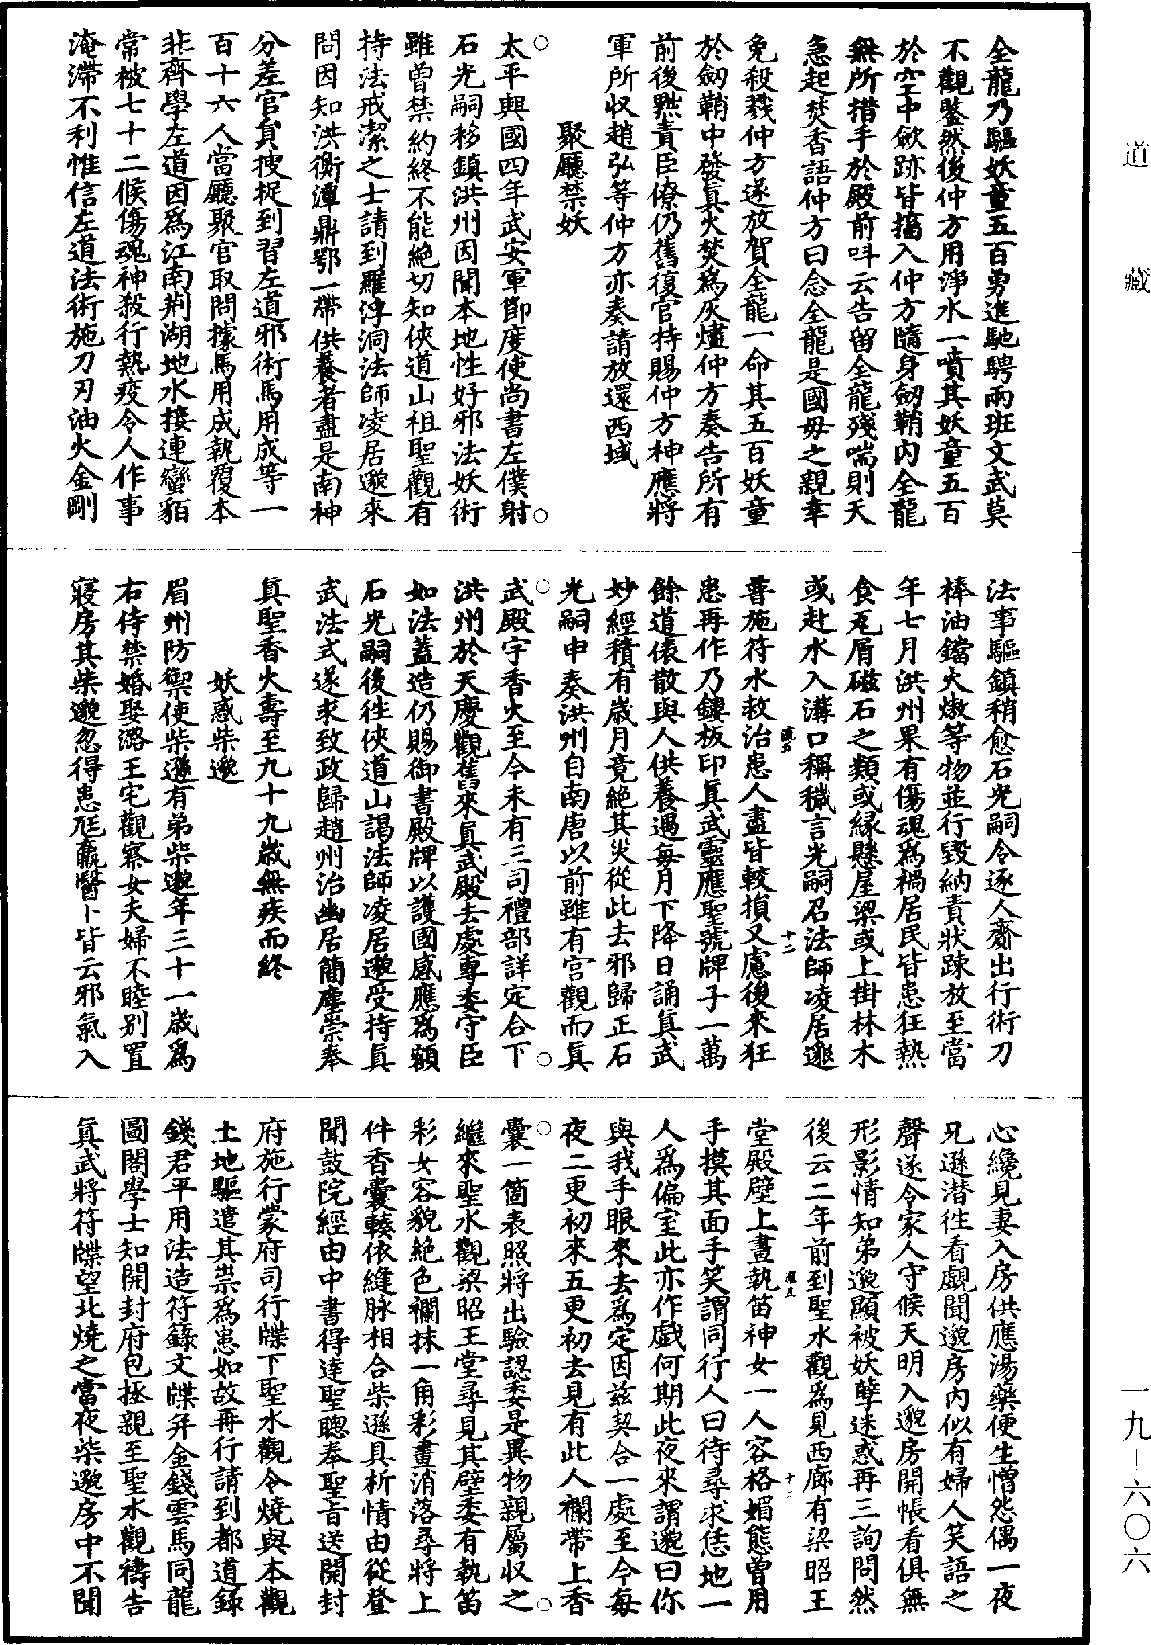 道藏
全龍乃驅妖童五百勇進馳騁兩班文武莫
不觀鑒然後仲方用淨水一噴其妖童五百
於空中斂跡皆搐入仲方隨身劒鞘内全龍
無所措手於殿前呌云告留全龍殘喘則天
急起焚香語仲方曰念全龍是國母之親幸
免殺戮仲方遂放賀全龍一命其五百妖童
於劒鞘中發真火焚為灰燼仲方奏告所有
前後黜責臣僚仍舊復官特賜仲方神應將
軍所収趙弘等仲方亦奏請放還西域
聚廳禁妖
太平興國四年武安軍節度使尚書左僕射
石光嗣移鎮洪州因聞本地性好邪法妖術
雖曾禁約終不能絶切知俠道山祖聖觀有
持法戒潔之士請到羅浮洞法師凌居邈來
問因知洪衡潭鼎鄂一帶供養者盡是南神
分差官員捜捉到習左道邪術馬用成等一
百十六人當廳聚官取問據馬用成執覆本
非齊學左道因為江南荆湖地水接連蠻貊
常被七十二候傷魂神殺行熱疫令人作事
淹滯不利惟信左道法術施刀刃油火金剛
法事驅鎮稍愈石光嗣令逐人齎出行術刀
棒油鐺火燉等物並行毀納責狀踈放至當
年七月洪州果有傷魂為禍居民皆患狂熱
食瓦屑磁石之類或緣懸屋梁或上掛林木
或赴水入溝口稱穢言光嗣召法師凌居邈
普施符水救治患人盡皆較損又慮後來狂
患再作乃鏤板印真武靈應聖號牌子一萬
餘道俵散與人供養遇每月下降日誦真武
妙經積有歲月竟絶其災從此去邪歸正石
光嗣申奏洪州自南唐以前雖有宫觀而真
武殿宇香火至今未有三司禮部詳定合下
洪州於天慶觀舊來真武殿去處專委守臣
如法蓋造仍賜御書殿牌以護國感應為額
石光嗣後徃俠道山謁法師凌居邈受持真
武法式遂求致政歸趙州治幽居簡塵崇奉
真聖香火壽至九十九歲無疾而終
妖惑柴邈
眉州防禦使柴遜有弟柴邈年三十一歲為
右侍禁婚娶潞王宅觀察女夫婦不睦别置
寢房其柴邈忽得患尫羸醫卜皆云邪氣入
心纔見妻入房供應湯藥便生憎怨偶一夜
兄遜潜徃看覰聞邈房内似有婦人笑語之
聲遂令家人守候天明入邈房開帳看俱無
形影情知弟邈顯被妖孽迷惑再三詢問然
後云二年前到聖水觀為見西廊有梁昭王
堂殿壁上畫執笛神女一人容格媚態曾用
手摸其面手笑謂同行人曰待尋求恁地一
人為偏室此亦作戯何期此夜來謂邈曰你
與我手眼來去為定因兹契合一處至今每
夜二更初來五更初去見有此人襴帶上香
囊一箇表照將出驗認委是異物親屬収之
繼來聖水觀梁昭王堂尋見其壁委有執笛
彩女容貌絶色襴抹一角彩畫消落尋將上
件香囊轃依縫脉相合柴遜具析情由從登
聞鼓院經由中書得達聖聰奉聖旨送開封
府施行蒙府司行牒下聖水觀令燒與本觀
土地驅遣其祟為患如故再行請到都道録
錢君平用法造符籙文牒并金錢雲馬同龍
圖閣學士知開封府包拯親至聖水觀禱告
真武將符牒望北燒之當夜柴邈房中不聞
一九—六〇六